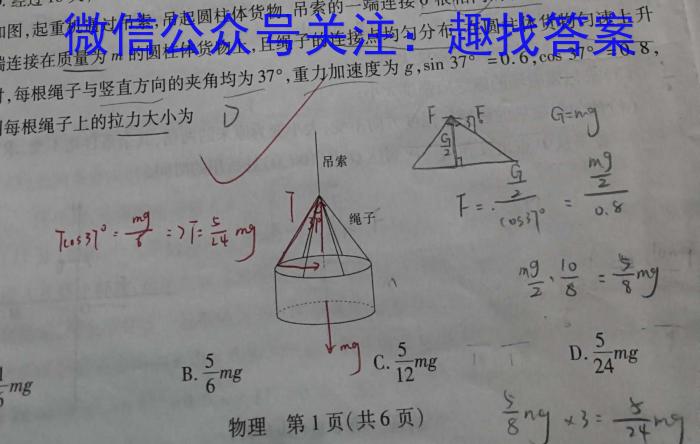 如图,起重机通过吊索,吊起圆柱体货物,吊索的一端连接6根
微信公众号关注：趣找答案
端连接在质量为m的圆柱体货物上,且绳子的连接点均匀分布,圆柱体货物匀速上升
时,每根绳子与竖直方向的夹角均为37°,重力加速度为g,sin 37°=0.6,cos 37°=0.8,
每根绳子上的拉力大小为 D
吊索
绳子
T
37°
mg
Tcos37°=mg/6 => T=5/24 mg
F F
G/2
G=mg
F=(G/2)/cos37° = (mg/2)/0.8
mg/2 · 10/8 = 5/8 mg
mg
B. 5/6 mg
C. 5/12 mg
D. 5/24 mg
5/8 mg ×3= 5/24 mg
物理 第1页(共6页)